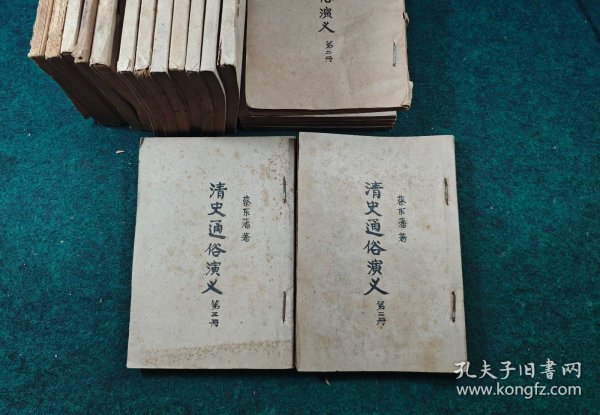 俗演义
第二册
蔡东藩 著
清史通俗演义
第三册
蔡东藩 著
清史通俗演义
第二册
孔夫子旧书网
www.kongfz.com